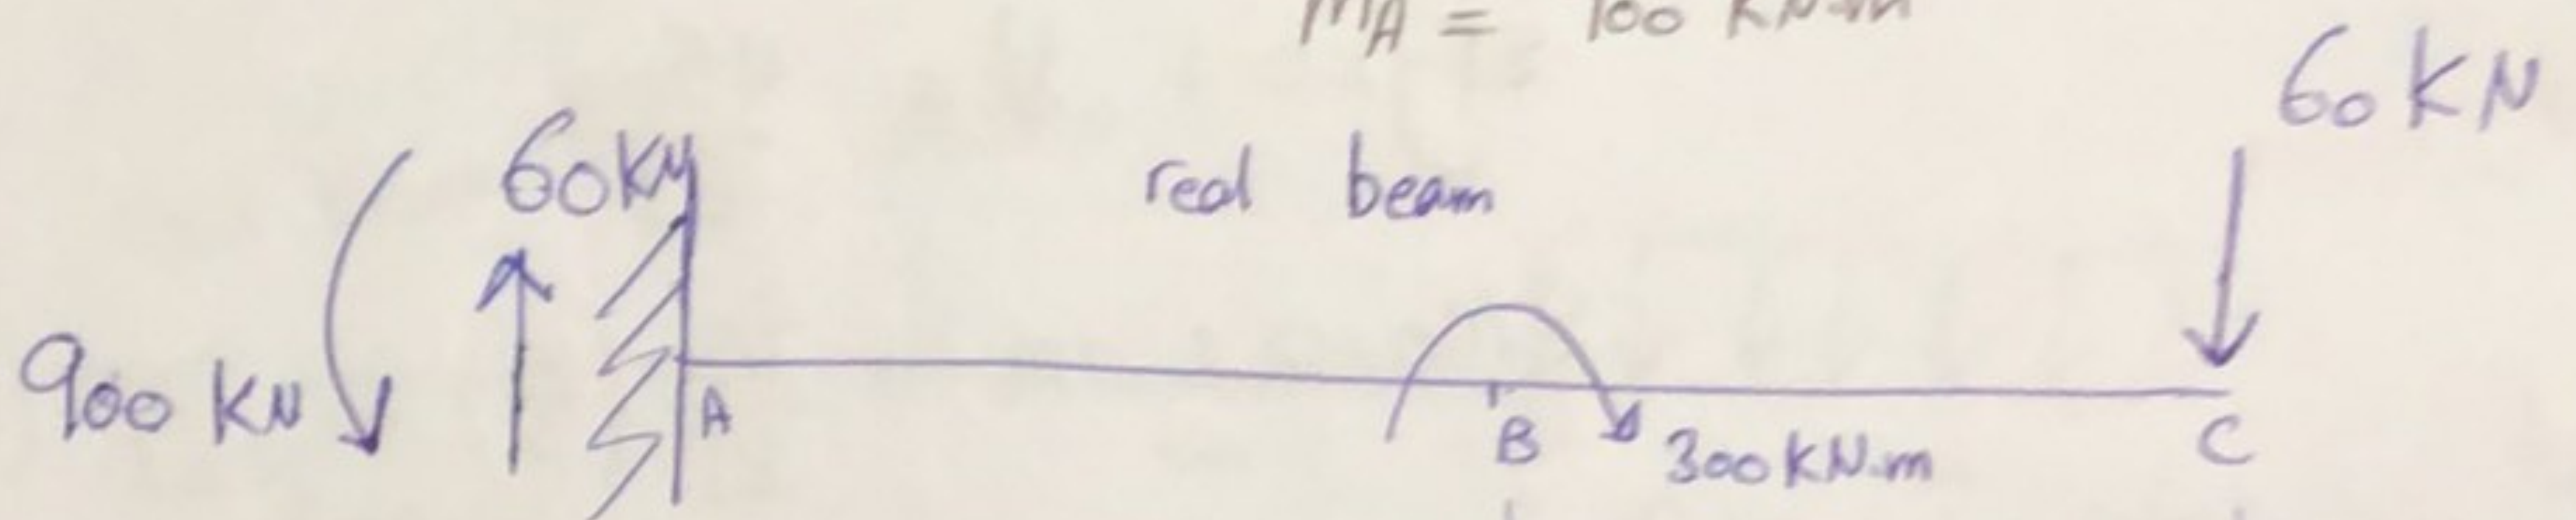 MA = 100 KN.m
60 KN
60KN
real beam
900 KN
A
B
300KN.m
C